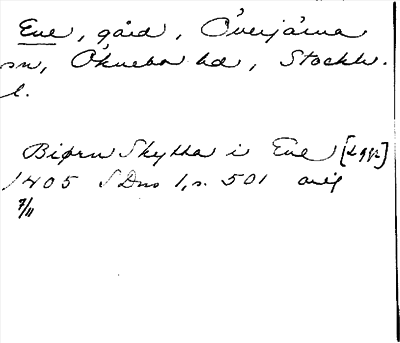 Ene, gård, Överjärna
sn, Öknebo hd, Stockh.
l.
Biørn Skytta i Ene
1405 SDns 1, s. 501 orig
7/11